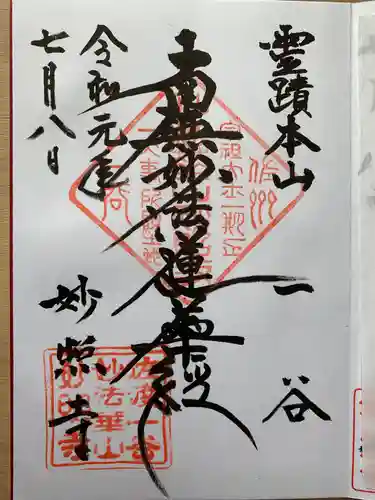 霊蹟本山
一谷
南無妙法蓮華経
令和元年
七月八日
妙照寺
佐渡一谷
妙法華山
妙照寺
佐州